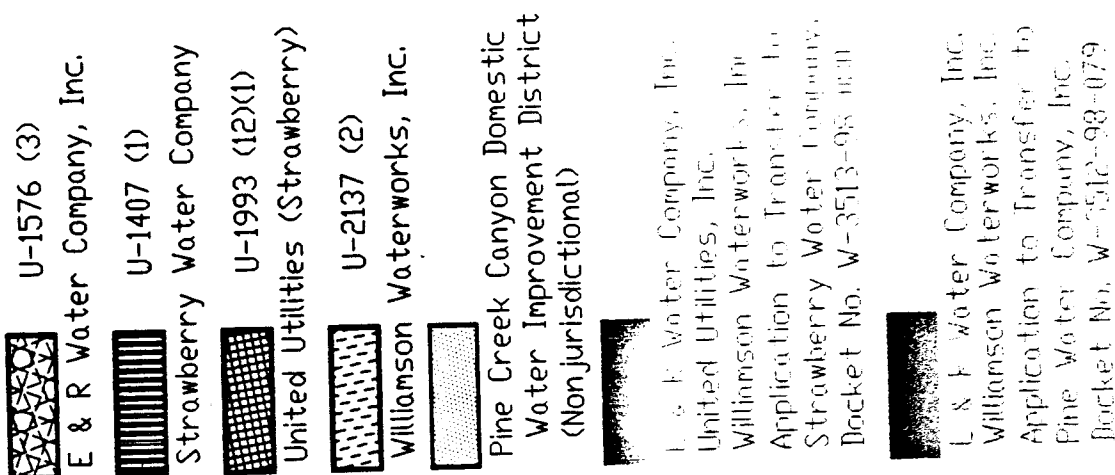 U-1576 (3)
E & R Water Company, Inc.
U-1407 (1)
Strawberry Water Company
U-1993 (12)(1)
United Utilities (Strawberry)
U-2137 (2)
Williamson Waterworks, Inc.
Pine Creek Canyon Domestic
Water Improvement District
(Nonjurisdictional)
& Water Company, Inc.
United Utilities, Inc.
Williamson Waterworks,
Application to Transfer
Strawberry Water Company,
Docket No.
& Water Company, Inc.
Williamson Waterworks, Inc.
Application to Transfer to
Pine Water Company, Inc.
Docket No. W-3512-98-079